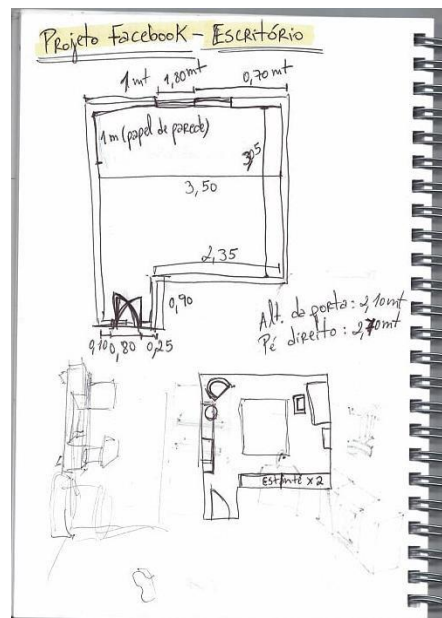 Projeto Facebook - Escritório
1 mt 1,80mt 0,70mt
1 m (papel de parede)
3,50
2,35
0,90
Alt. da porta: 2,10mt
Pé direito: 2,70mt
0,10 0,80 0,25
Estante x 2